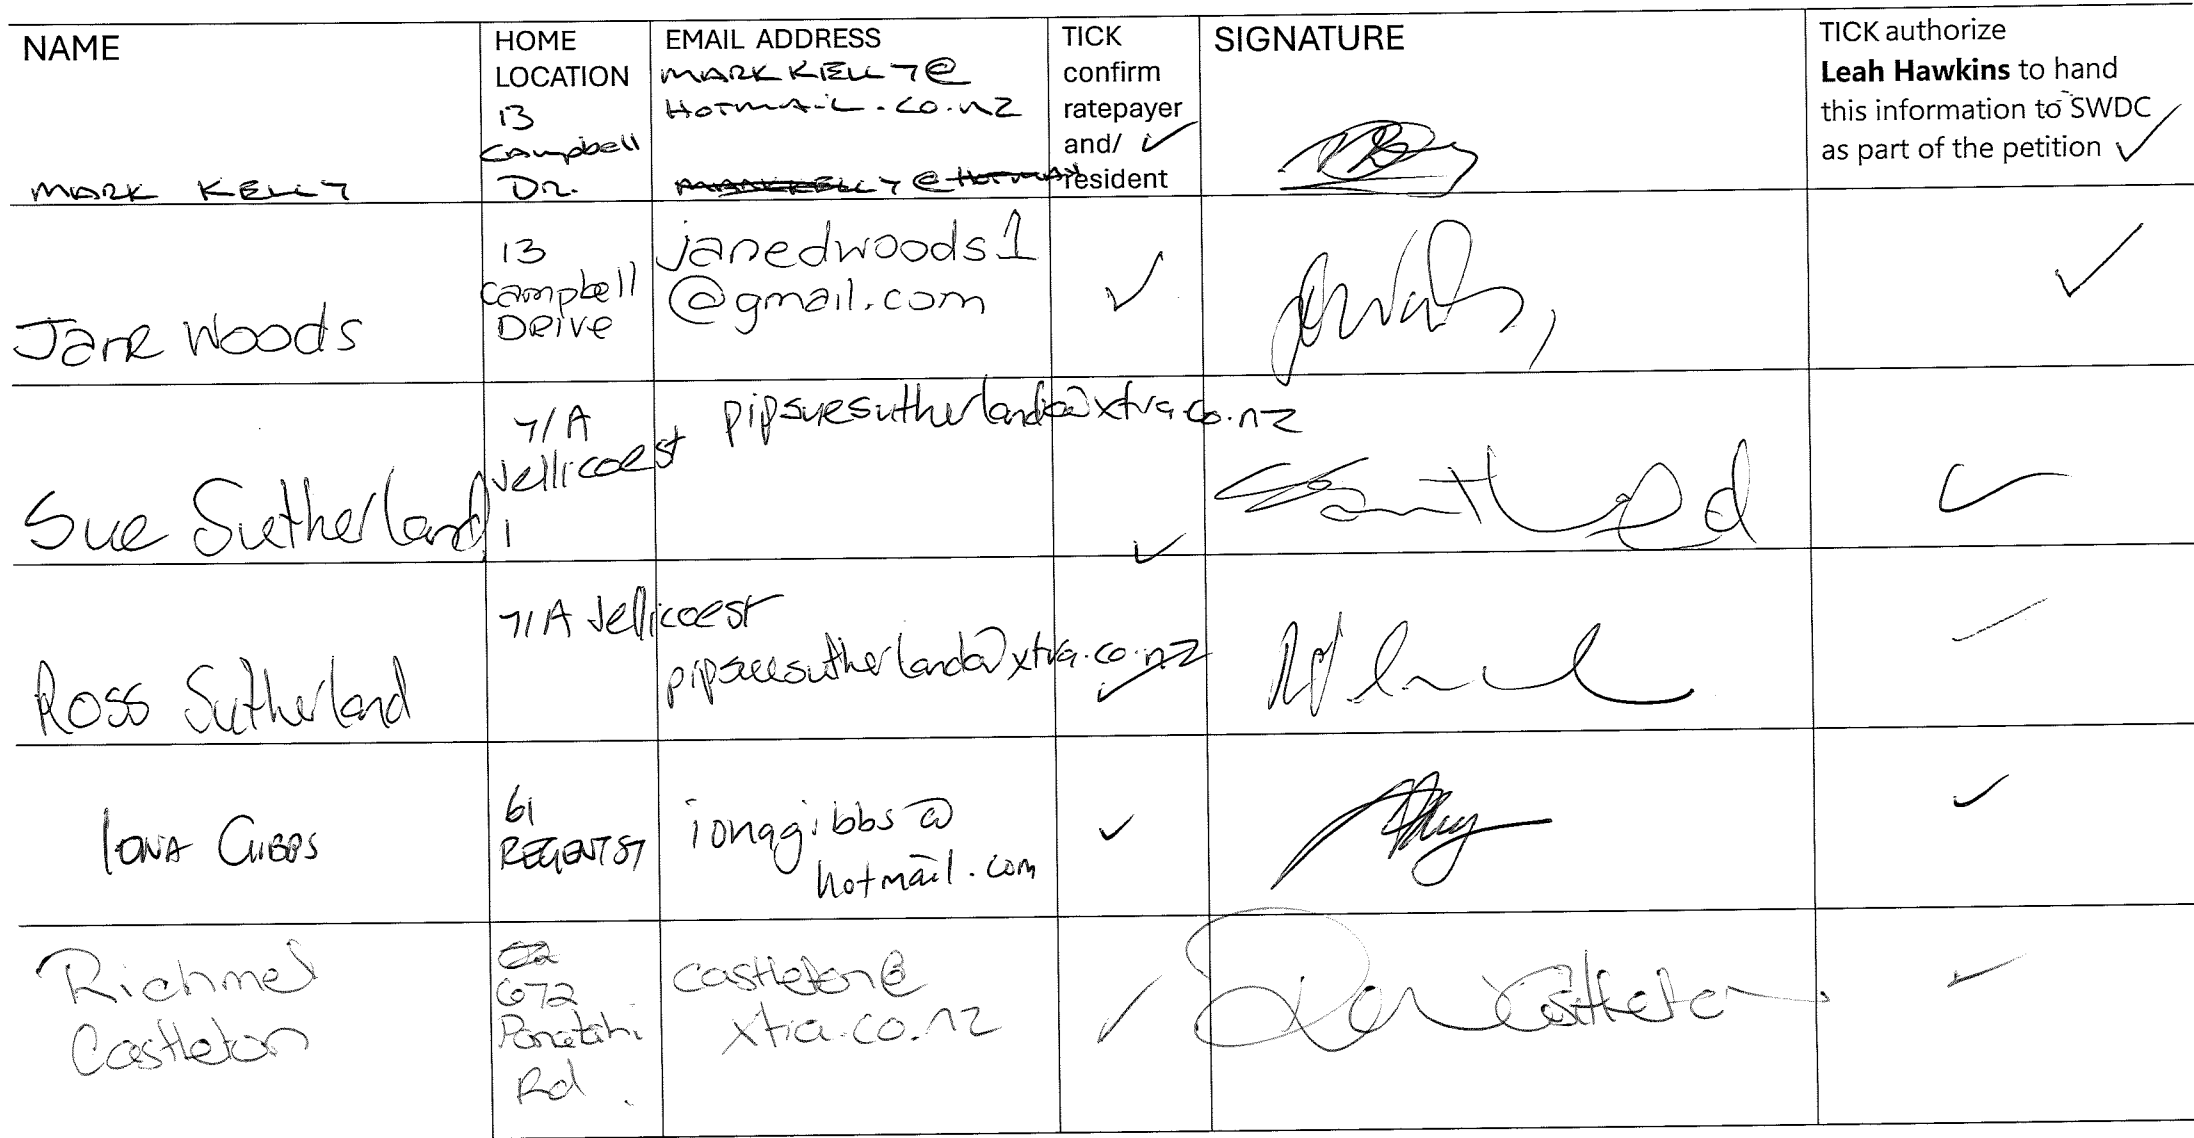 NAME
HOME
LOCATION
EMAIL ADDRESS
TICK
confirm
ratepayer
and/ ✓
resident
SIGNATURE
TICK authorize
Leah Hawkins to hand
this information to SWDC
as part of the petition ✓
MARK KELLY
13
Campbell
DR.
MARKKELLY@
HOTMAIL.CO.NZ
Jane Woods
13
Campbell
DRIVE
janedwoods1
@gmail.com
✓
✓
Sue Sutherland
7/A
Jellicoest
pipsuesutherland@xtra.co.nz
✓
✓
Ross Sutherland
7/A Jellicoest
pipsuesutherland@xtra.co.nz
✓
IONA GIBBS
61
REGENT ST
ionagibbs@
hotmail.com
✓
✓
Castleton
672
Rd
castleton@
xtra.co.nz
✓
✓